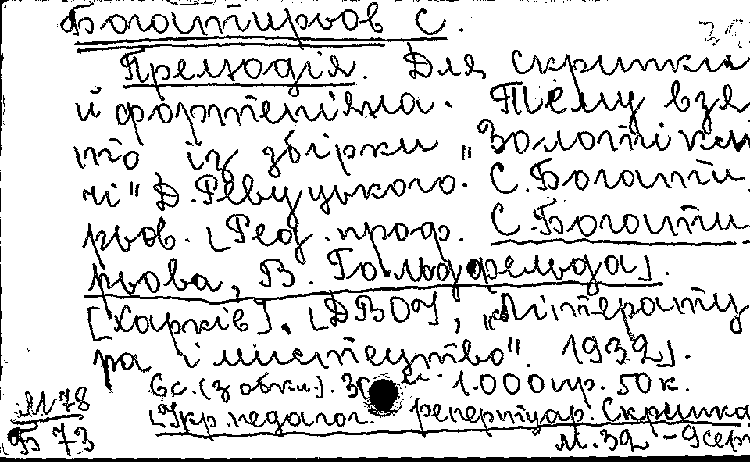 Богатирьов С.
Прелюдія. Для скрипки
й фортепіяна. Тему взя
то із збірки „Золоті клю
чі" Д. Ревуцького. С. Богати
рьов. [Ред. проф. С. Богати
рьова, В. Гольдфельда].
[Харків]. [ДВОУ, „Літерату
ра і мистецтво". 1932].
6 с. (з обкл.). 1.000 пр. 50 к.
М 78
Б 73
[Укр. педагог. репертуар. Скрипка